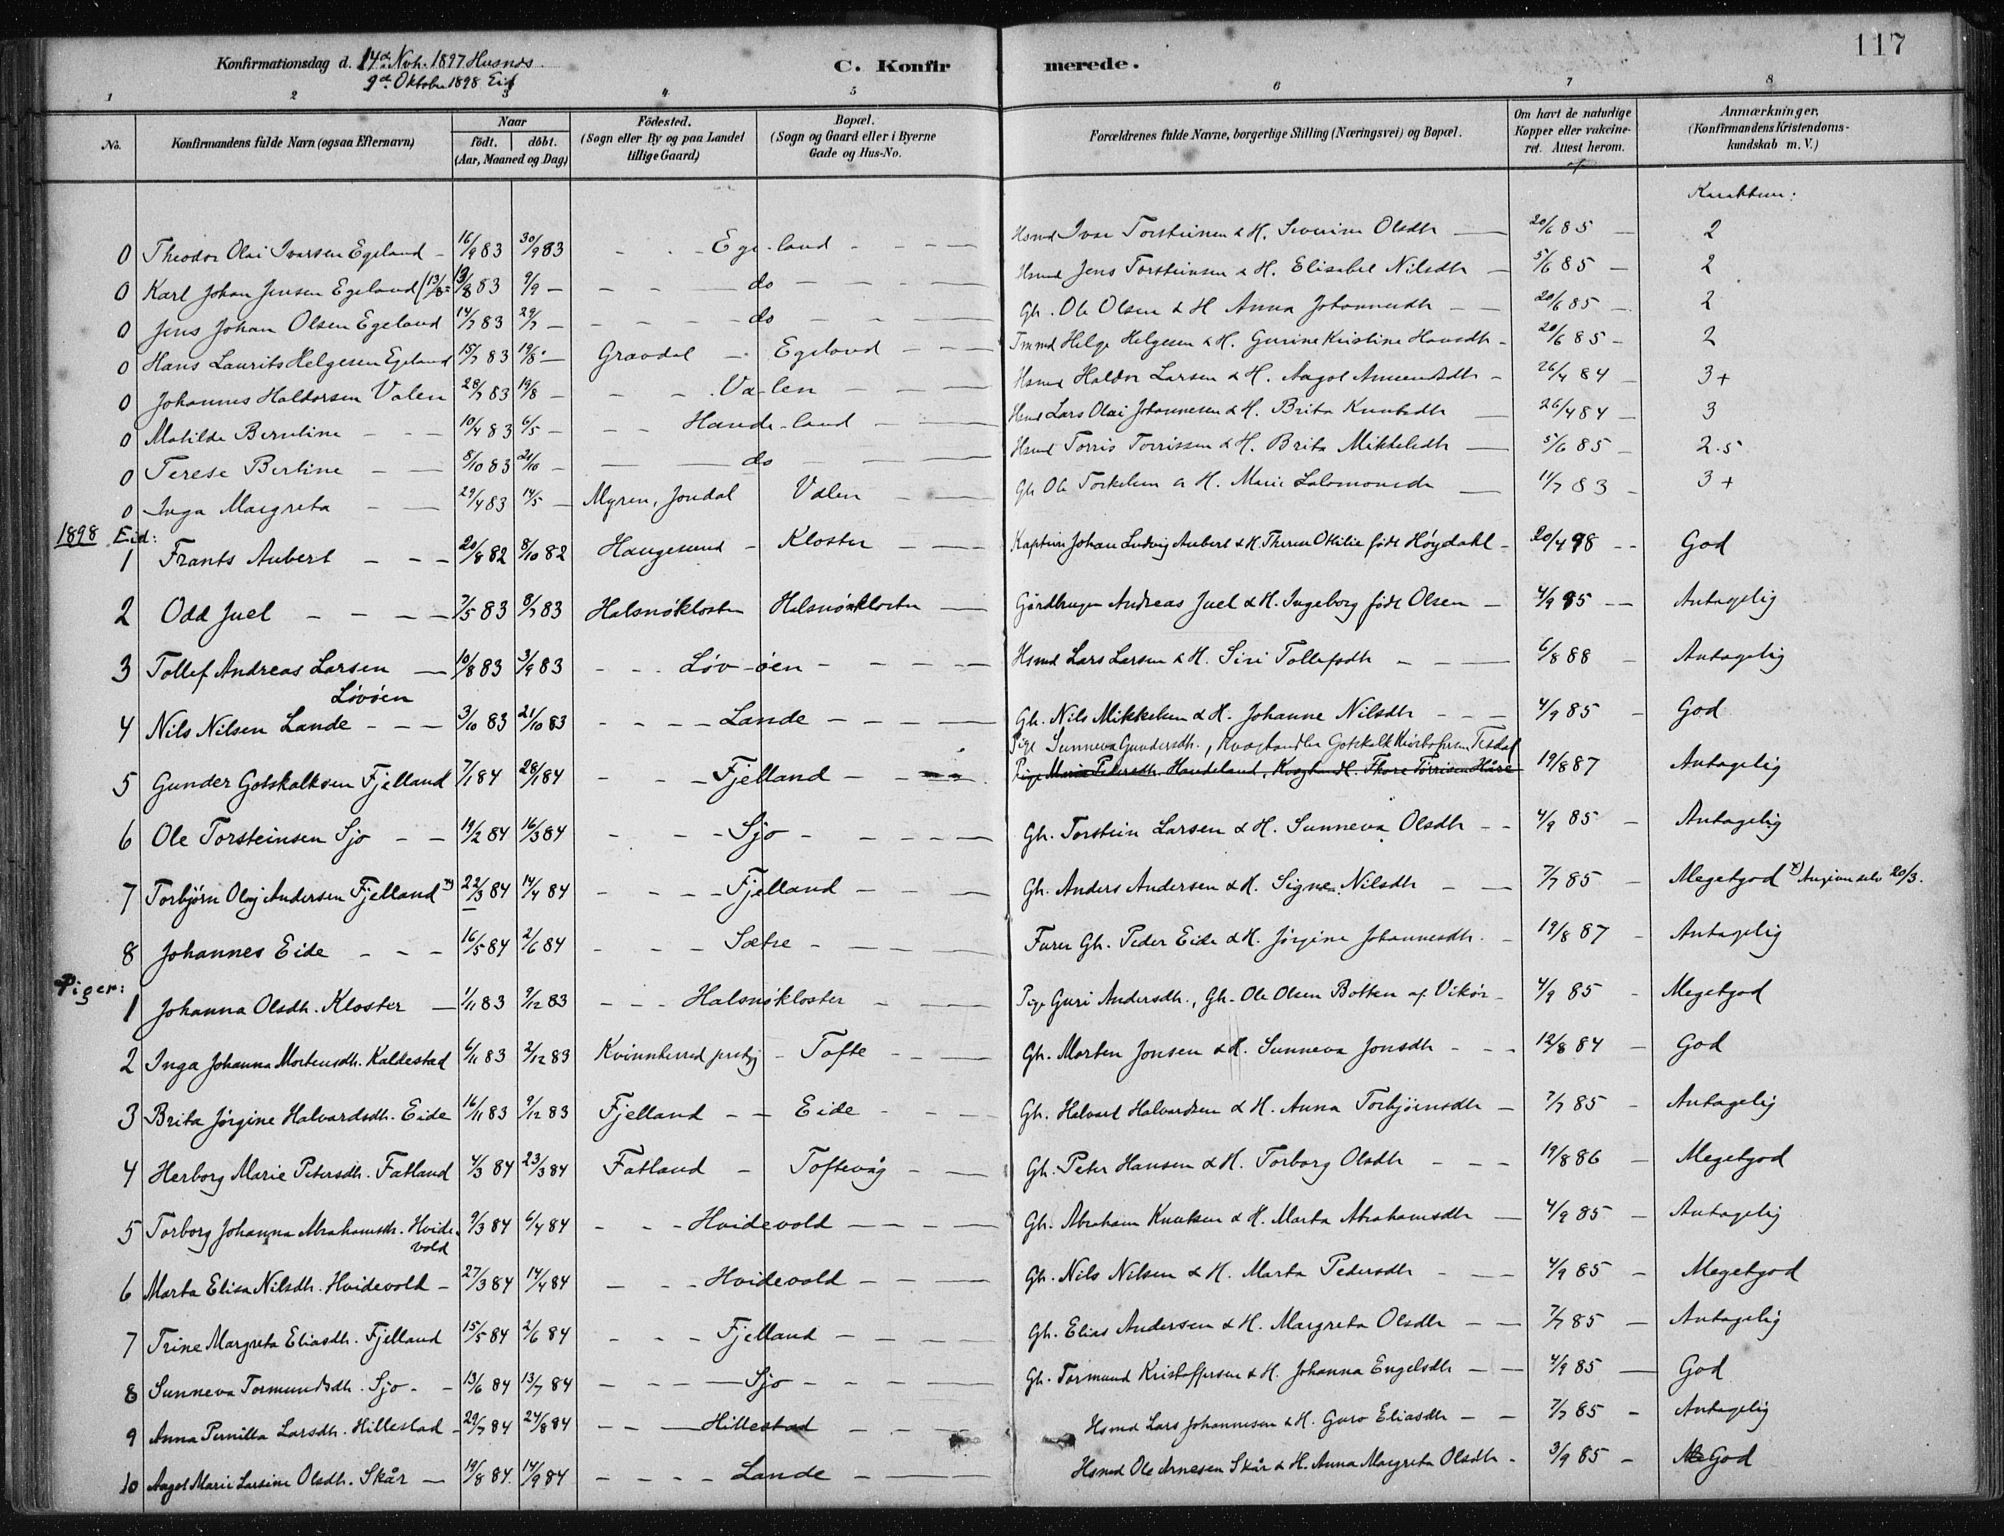 117
Konfirmationsdag d. 14de Nvb. 1897 Husnes
9de Oktober 1898 Eid
C. Konfirmerede.
1 2 3 4 5 6 7 8
No. Konfirmandens fulde Navn (ogsaa Efternavn) Naar födt. döbt. (Aar, Maaned og Dag) Födested. (Sogn eller By og paa Landet tillige Gaard) Bopæl. (Sogn og Gaard eller i Byerne Gade og Hus-No. Forældrenes fulde Navne, borgerlige Stilling (Næringsvei) og Bopæl. Om havt de naturlige Kopper eller vakcineret. Attest herom. Anmærkninger. (Konfirmandens Kristendomskundskab m. V.)
Karakteer:
0 Theodor Olai Ivarsen Egeland - 16/9 83 30/9 83 - - - Egeland - - - Hsmd Ivar Torsteinsen & H. Severine Olsdtr - 20/6 85 - 2
0 Karl Johan Jensen Egeland (13/8 13/8 83 9/9 - - - do - - - Hsmd Jens Torsteinsen & H. Elisabet Nilsdtr - 5/6 85 - 2
0 Jens Johan Olsen Egeland 14/7 83 29/7 - - - do - - - Gb. Ole Olsen & H Anna Johannesdtr - 20/6 85 - 2
0 Hans Laurits Helgesen Egeland 15/7 83 19/8 - Gravdal - Egeland - - Tmmd Helge Helgesen & H. Gurine Kristine Hansdtr - 20/6 85 - 2
0 Johannes Haldorsen Valen 28/7 83 19/8 - - - Valen - - - Hsmd Haldor Larsen & H. Aagot Amundsdtr - 26/4 84 - 3+
0 Matilde Berntine - - 10/4 83 6/5 - - - Handeland - - Hsmd Lars Olai Johannesen & H. Brita Knutsdtr - 26/4 84 - 3
0 Terese Bertine - - 8/10 83 21/10 - - do - - Hsmd Torris Torrissen & H. Brita Mikkelsdtr - 5/6 85 - 2.5
0 Inga Margreta - - 29/4 83 14/5 - Myren, Jondal Valen - - Gb. Ole Torkelsen & H. Marie Salomonsdr - 11/7 83 - 3+
1898 Eid:
1 Frants Aubert - - - 20/8 82 8/10 82 Haugesund - Kloster - - - Kaptein Johan Ludvig Aubert & H. Therese Otilie født Høydahl - 20/4 98 - - God
2 Odd Juel - - - 7/5 83 8/7 83 Halsnökloster Halsnökloster - Gårdbruger Andreas Juel & H. Ingeborg født Olsen - 4/9 95 - - Antagelig
3 Tollef Andreas Larsen Løvöen - 10/8 83 3/9 83 - - - Løvöen - - - - Hsmd Lars Larsen & H. Siri Tollefsdtr - - 6/8 88 - Antagelig
4 Nils Nilsen Lande - - - 3/10 83 21/10 83 - - - - Lande - - - - Gb. Nils Mikkelsen & H. Johanne Nilsdtr - - - 4/9 85 - God
Pige Sunneva Gundersdtr., Kvaghandler Gotskalk Kristofersen Tesdal
5 Gunder Gotskalksen Fjelland 7/1 84 28/1 84 - - - Fjelland - - - Pige Maria Pedersdtr. Handeland, Kvaghandl. Thore Torrisen Håre 19/8 87 Antagelig
6 Ole Torsteinsen Sjo - - 19/2 84 16/3 84 - - - Sjo - - - - Gb. Torstein Larsen & H. Sunneva Olsdtr - - 4/9 85 - Antagelig
7 Torbjørn Olaj Andersen Fjelland x) 22/3 84 14/4 84 - - - Fjelland - - - Gb. Anders Andersen & H. Signe Nilsdtr - - 7/7 85 - Megetgod x) Angiver selv 20/3.
8 Johannes Eide - - - 16/5 84 2/6 84 - - - Sætre - - - Furer Gb. Peder Eide & H. Jørgine Johannesdtr. - 19/8 87 - Antagelig
Piger:
1 Johanna Olsdtr. Kloster - 1/11 83 9/12 83 - - - Halsnökloster - - - Pige Guri Andersdtr., Gb. Ole Olsen Botten af Vikør - 4/9 85 - Megetgod
2 Inga Johanna Mortensdtr. Kaldestad 6/11 83 2/12 83 Kvinnherred prstgj - Tofte - - - Gb. Morten Jonsen & H. Sunneva Jonsdtr - - - 12/8 84 - God
3 Brita Jörgine Halvardsdtr. Eide 16/11 83 9/12 83 Fjelland - - Eide - - - Gb. Halvart Halvardsen & H. Anna Torbjørnsdtr - 7/7 85 - Antagelig
4 Herborg Marie Petersdtr. Fatland 4/3 84 23/3 84 Fatland - Toftevåg - - - Gb. Peter Hansen & H. Torborg Olsdtr - - - 19/8 86 - Megetgod
5 Torborg Johanna Abrahamsdtr. Hvidevold 9/3 84 6/4 84 - - - Hvidevold - - - - Gb. Abraham Knutsen & H. Marta Abrahamsdtr - 4/9 85 - Antagelig
6 Marta Elisa Nilsdtr. Hvidevold - 27/3 84 14/4 84 - - - Hvidevold - - - Gb. Nils Nilsen & H. Marta Pedersdtr - - 4/9 85 - Megetgod
7 Trine Margreta Eliasdtr. Fjelland 15/5 84 2/6 84 - - - Fjelland - - - Gb. Elias Andersen & H. Margreta Olsdtr - - 7/7 85 - Antagelig
8 Sunneva Tormundsdtr. Sjo - - 13/6 84 13/7 84 - - - Sjo - - - - Gb. Tormund Kristoffersen & H. Johanna Engelsdtr - - 4/9 85 - God
9 Anna Pernilla Larsdtr. Hillestad - 29/7 84 24/8 84 - - - Hillestad - - - Hsmd Lars Johannesen & H. Guro Eliasdtr - - 7/7 85 - Antagelig
10 Aagot Marie Larsine Olsdtr. Skår - 19/8 84. 14/9 84 - - - - Lande - - Hsmd Ole Arnesen Skår & H. Anna Margreta Olsdtr - 3/9 85 - God